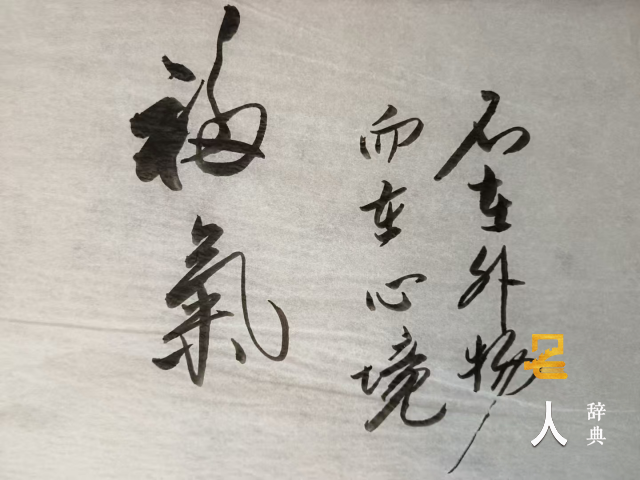 不在外物
而在心境
福氣
名人
辞典